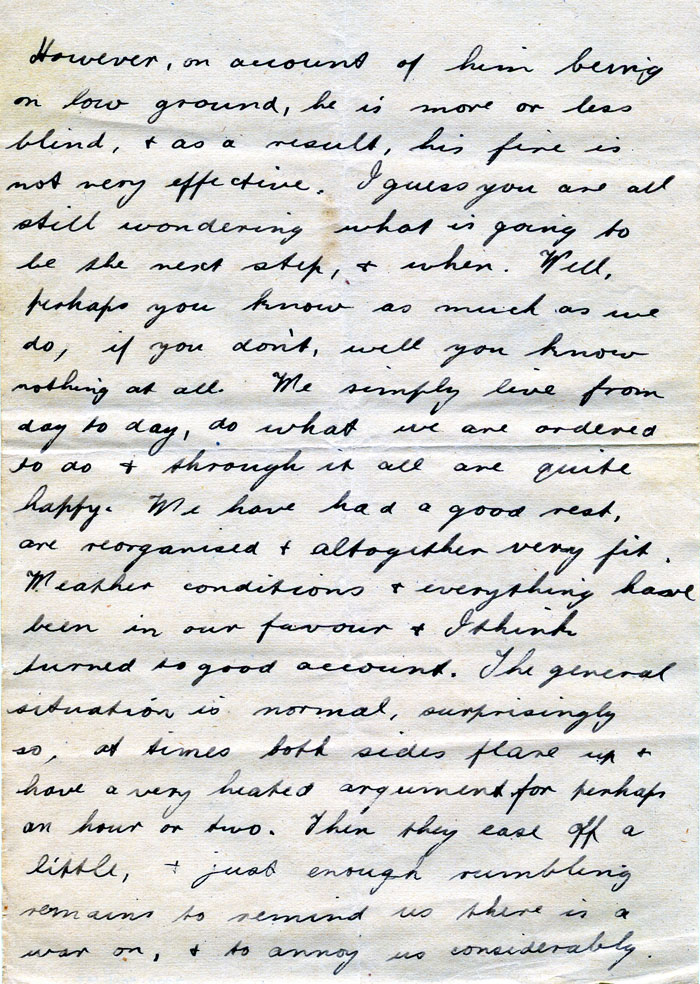 However, on account of him being
on low ground, he is more or less
blind, & as a result, his fire is
not very effective. I guess you are all
still wondering what is going to
be the next step, & when. Well,
perhaps you know as much as we
do, if you don't, well you know
nothing at all. We simply live from
day to day, do what we are ordered
to do & through it all are quite
happy. We have had a good rest,
are reorganised & altogether very fit.
Weather conditions & everything have
been in our favour & I think
turned to good account. The general
situation is normal, surprisingly
so, at times both sides flare up &
have a very heated argument for perhaps
an hour or two. Then they ease off a
little, & just enough rumbling
remains to remind us there is a
war on, & to annoy us considerably.